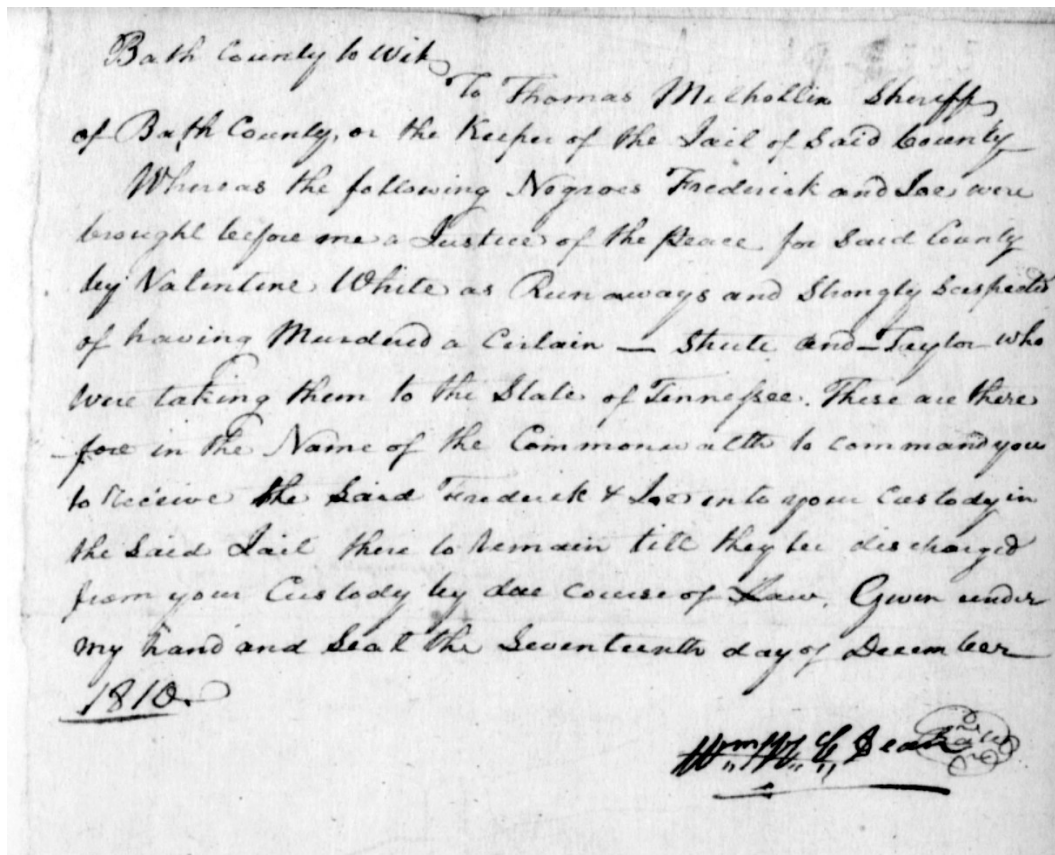 Bath County to Wit
To Thomas Milhollin Sheriff
of Bath County, or the Keeper of the Jail of Said County
Whereas the following Negroes Frederick and Joe were
brought before me a Justice of the Peace for Said County
by Valentine White as Runaways and Strongly Suspected
of having Murdered a Certain — Shute and – Taylor who
were taking them to the State of Tennessee. These are there
fore in the Name of the Commonwealth to command you
to Receive the Said Frederick & Joe into your Custody in
the Said Jail there to Remain till they be discharged
from your Custody by due Course of Law. Given under
my hand and Seal the Seventeenth day of December
1810.
Wm